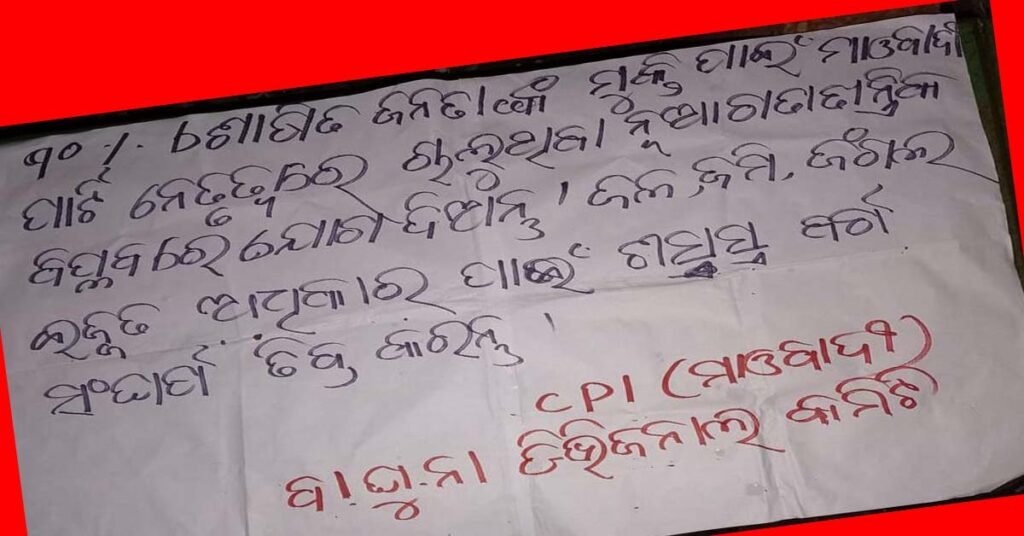 ୩୦ ./. ଶୋଷିତ ଜନତାଙ୍କ ମୁକ୍ତି ପାଇଁ ମାଓବାଦୀ
ପାର୍ଟି ନେତୃତ୍ୱରେ ଚାଲୁଥିବା ନୂଆଗଣତାନ୍ତ୍ରିକ
ବିପ୍ଳବରେ ଯୋଗ ଦିଅନ୍ତୁ । ଜଳ, ଜମି, ଜଙ୍ଗଲ
ଇଜ୍ଜତ ଅଧିକାର ପାଇଁ ଶସସ୍ତ୍ର ବର୍ଗ
ସଂଘର୍ଷ ତିବ୍ର କରନ୍ତୁ ।
CPI (ମାଓବାଦୀ)
ବା.ଘୁ.ନା ଡିଭିଜନାଲ କମିଟି